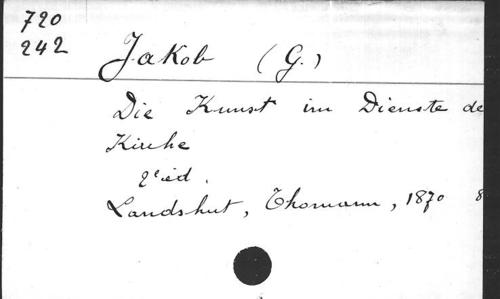 720
242
Jakob (G.)
Die Kunst im Dienste de
Kirche
2e ed.
Landshut, Thomann, 1870 8